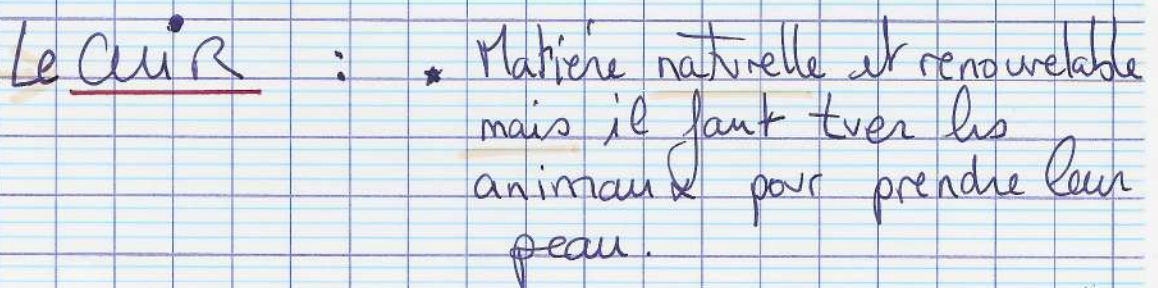 Le CUiR : * Matière naturelle et renouvelable
mais il faut tuer les
animaux pour prendre leur
peau.